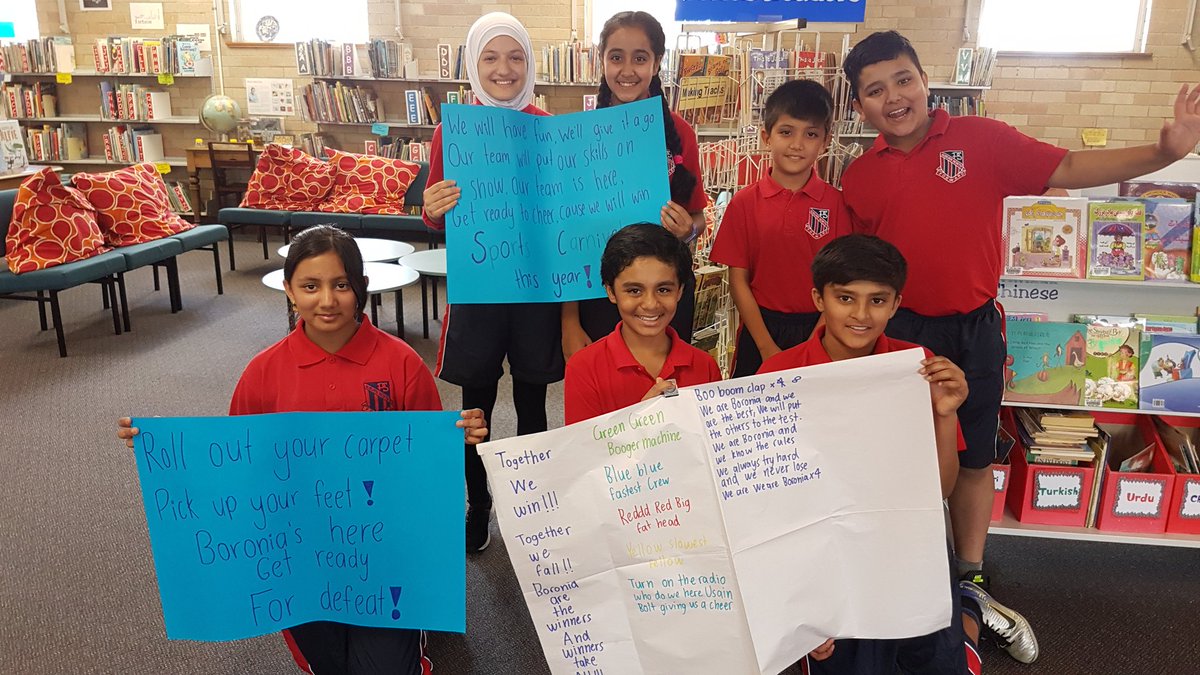 Making Tracks
We will have fun, we'll give it a go
Our team will put our skills on
show. Our team is here,
Get ready to cheer, cause we will win
Sports Carniv
this year!
Roll out your carpet
Pick up your feet!
Boronia's here
Get ready
For defeat!
Together
We
win!!!
Together
we
fall!!
Boronia
are
the
winners
And
winners
take
Green Green
Booger machine
Blue blue
fastest Crew
Reddd Red Big
fat head
Yellow slowest
fellow
Turn on the radio
who do we here Usain
Bolt giving us a cheer
Boo boom clap x4
We are Boronia and we
are the best, We will put
the others to the test.
We are Boronia and
we know the rules
We always try hard
and we never lose
We are We are Boronia x4
Chinese
Turkish
Urdu